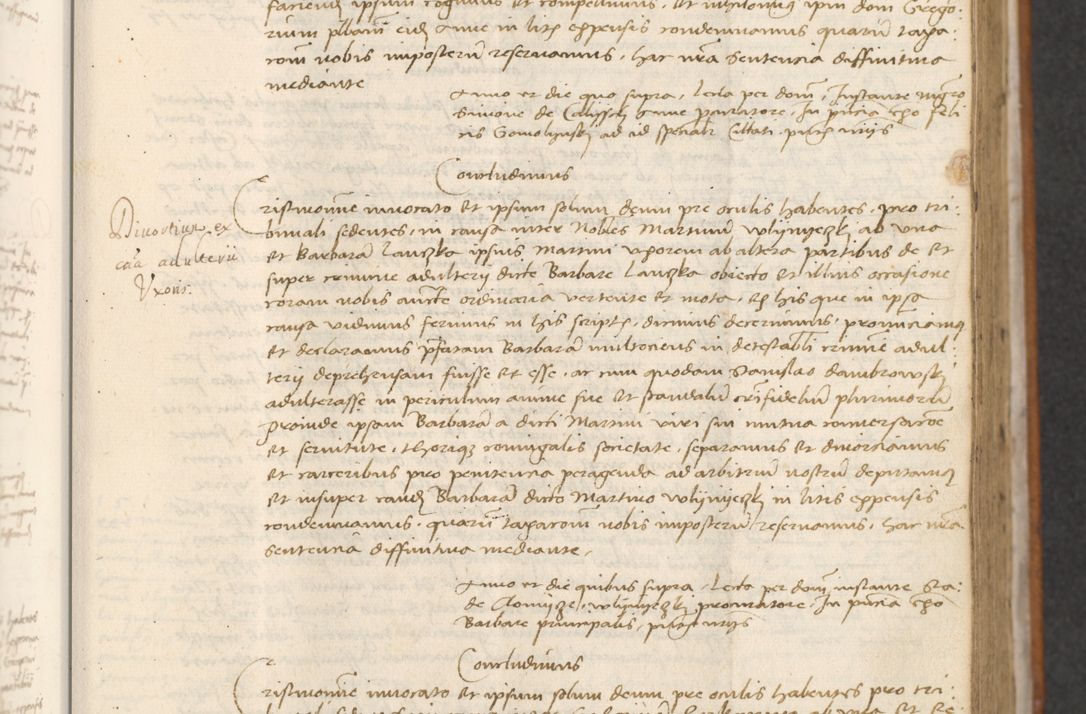 faciend ipsum cogimus et compellimus, et nihilominus ipm dom Grego:
rium plbanū eid Anne in litis expensis condemnamus quarū taxa
com nobis imposterū reservamus, hac nrā sententia diffinitiva
mediante
Anno et die quo supra, Lecta per dom̄, Instante mgro
Simone de Anne procuratore, In pn̄cia cho Feli
cis Gomolynskj ad id spetialr Citati
Concludimus
Divortium ex
cā adulterii
Uxoris.
Cristi nomine invocato et ipsum solum deum pre oculis habentes, pro tri:
bunali sedentes, in causa inter Nobles Martinum ab una
et Barbarā Lanczka ipsius Martini uxorem ab altera partibus de et
super crimine adulterij dicte Barbare Lanczka obiecto et illius occasione
coram nobis aucte ordinaria vertente et mota, ex his que in ipsa
causa vidimus ferimus in his scriptis, dicimus decernimus, pronunciamus
et declaramus prefatam Barbarā multociens in detestabli crimine adul:
terij deprehensam fuisse et esse, ac cum quodam Stanislao dambrowskj
adulterasse in periculum anime sue et scandalū crifidelium plurimorū
Proinde ipsam Barbarā a dicti Martini viri sui mutua conversacōe
et servitute, thorique coniugalis societate, separamus et divorciamus
et carceribus pro penitencia peragenda ad arbitriū nostrū deputamus
et insuper eand Barbarā dicto Martino in litis expensis
condemnamus, quarū taxacom nobis imposterū reservamus, hac nrā
sententia diffinitiva mediante,
Anno et die quibus supra, Lecta per dom̄ instante Sta:
de procuratore, In pn̄cia cho
Barbare principalis,
Concludimus
Cristi nomine invocato et ipsum solum deum pre oculis habentes pro tri: